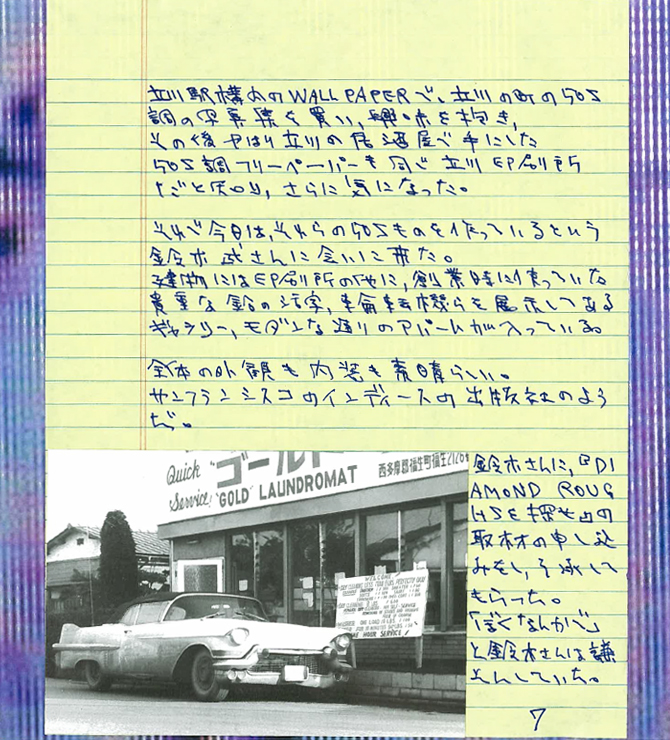 立川駅構内のWALL PAPERで、立川の町の50S
調の写真集を買い、興味を抱き、
その後やはり立川の居酒屋で手にした
50S調フリーペーパーも同じ立川印刷所
だと知り、さらに気になった。
それで今日は、それらの50Sものを作っているという
鈴木武さんに会いに来た。
建物には印刷所の他に、創業時に使っていた
貴重な鉛の活字、輪転機らを展示してある
ギャラリー、モダンな造りのアパートが入っている。
全体の外観も内装も素晴らしい。
サンフランシスコのインディースの出版社のよう
だ。
Quick Service
ゴールド
"GOLD" LAUNDROMAT
西多摩郡福生町福生2126
WELCOME
HOUR SERVICE!
鈴木さんに、『DI
AMOND ROUG
HSを探せ』の
取材の申し込
みをし、了承して
もらった。
「ぼくなんかで」
と鈴木さんは謙
そんしていた。
7